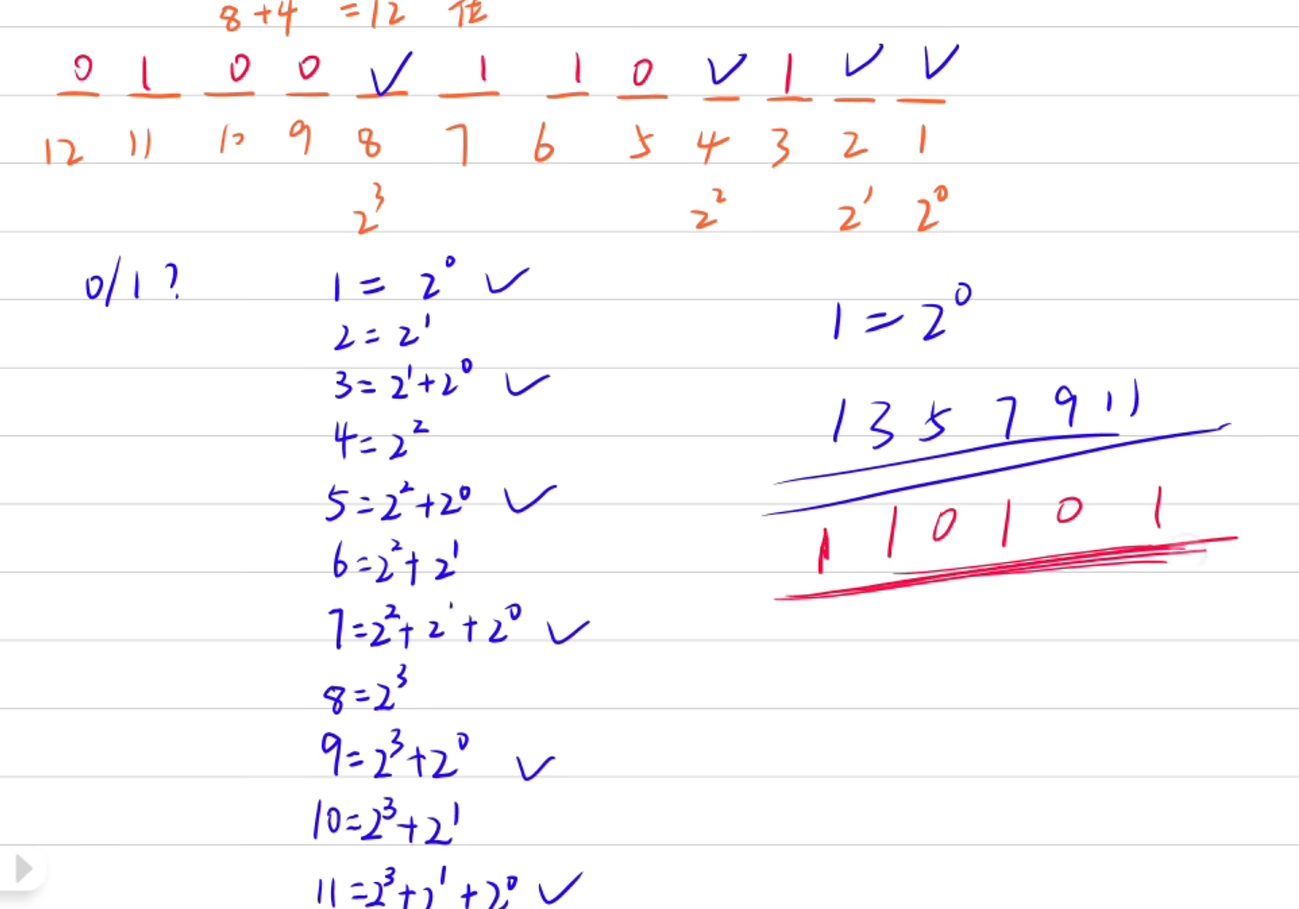 8+4 =12 位
0 1 0 0 ✓ 1 1 0 ✓ 1 ✓ ✓
12 11 10 9 8 7 6 5 4 3 2 1
2³ 2² 2¹ 2⁰
0/1?
1 = 2⁰ ✓
2 = 2¹
3 = 2¹+2⁰ ✓
4 = 2²
5 = 2²+2⁰ ✓
6 = 2²+2¹
7 = 2²+2¹+2⁰ ✓
8 = 2³
9 = 2³+2⁰ ✓
10 = 2³+2¹
11 = 2³+2¹+2⁰ ✓
1 = 2⁰
1 3 5 7 9 11
1 1 0 1 0 1